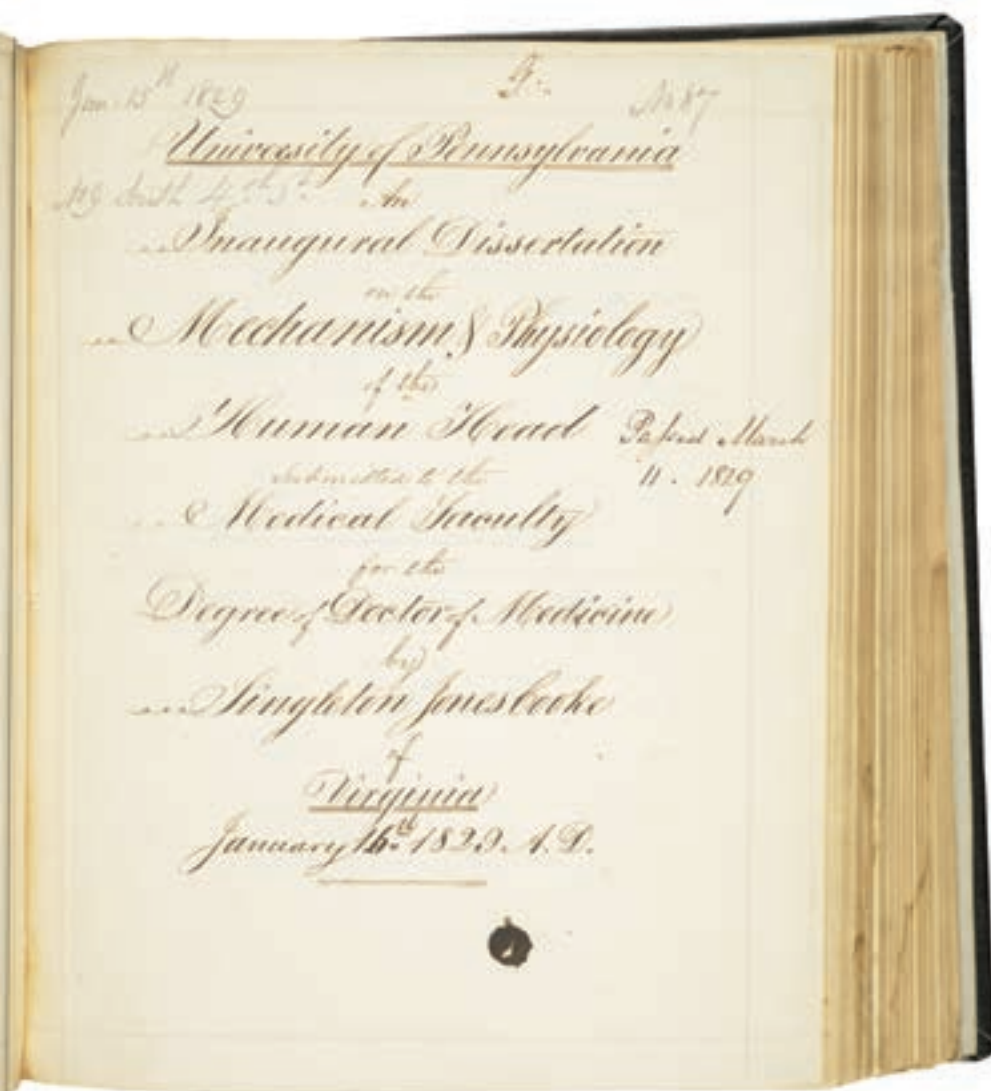 Jan. 15th 1829
No 87
University of Pennsylvania
4th St.
An
Inaugural Dissertation
on the
Mechanism & Physiology
of the
Human Head
Passed March
11. 1829
Submitted to the
Medical Faculty
for the
Degree of Doctor of Medicine
by
Singleton Jones Cooke
of
Virginia
January 16th 1829. A.D.